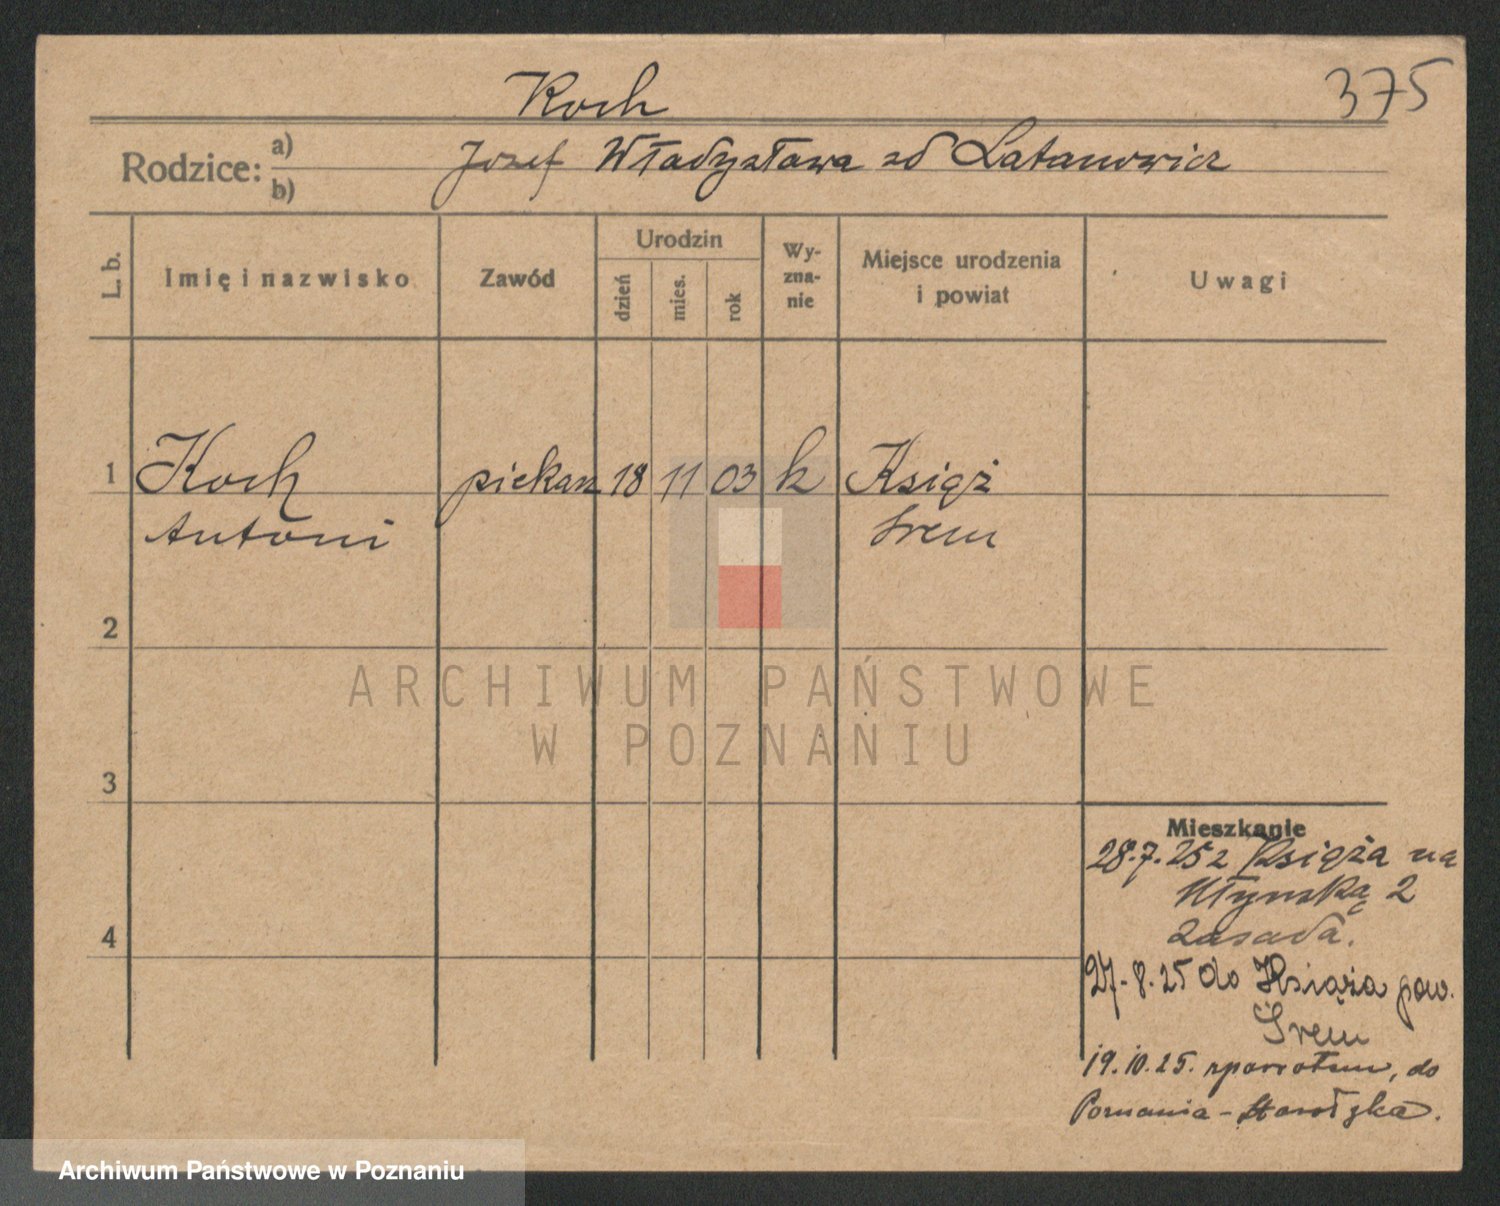 Koch
375
Rodzice: a) b)
Józef Władysława zd Latanowicz
L. b.
Imię i nazwisko
Zawód
Urodzin
dzień
mies.
rok
Wy-
zna-
nie
Miejsce urodzenia
i powiat
Uwagi
1 Koch piekarz 18 11 03 k Książ
Antoni Śrem
2
ARCHIWUM PAŃSTWOWE
W POZNANIU
3
Mieszkanie
28.7.25 z Książa na
Młyńską 2
Zasada.
4
27.8.25 do Książa pow.
Śrem
19.10.25. zpowrotem, do
Poznania - Starołęka.
Archiwum Państwowe w Poznaniu